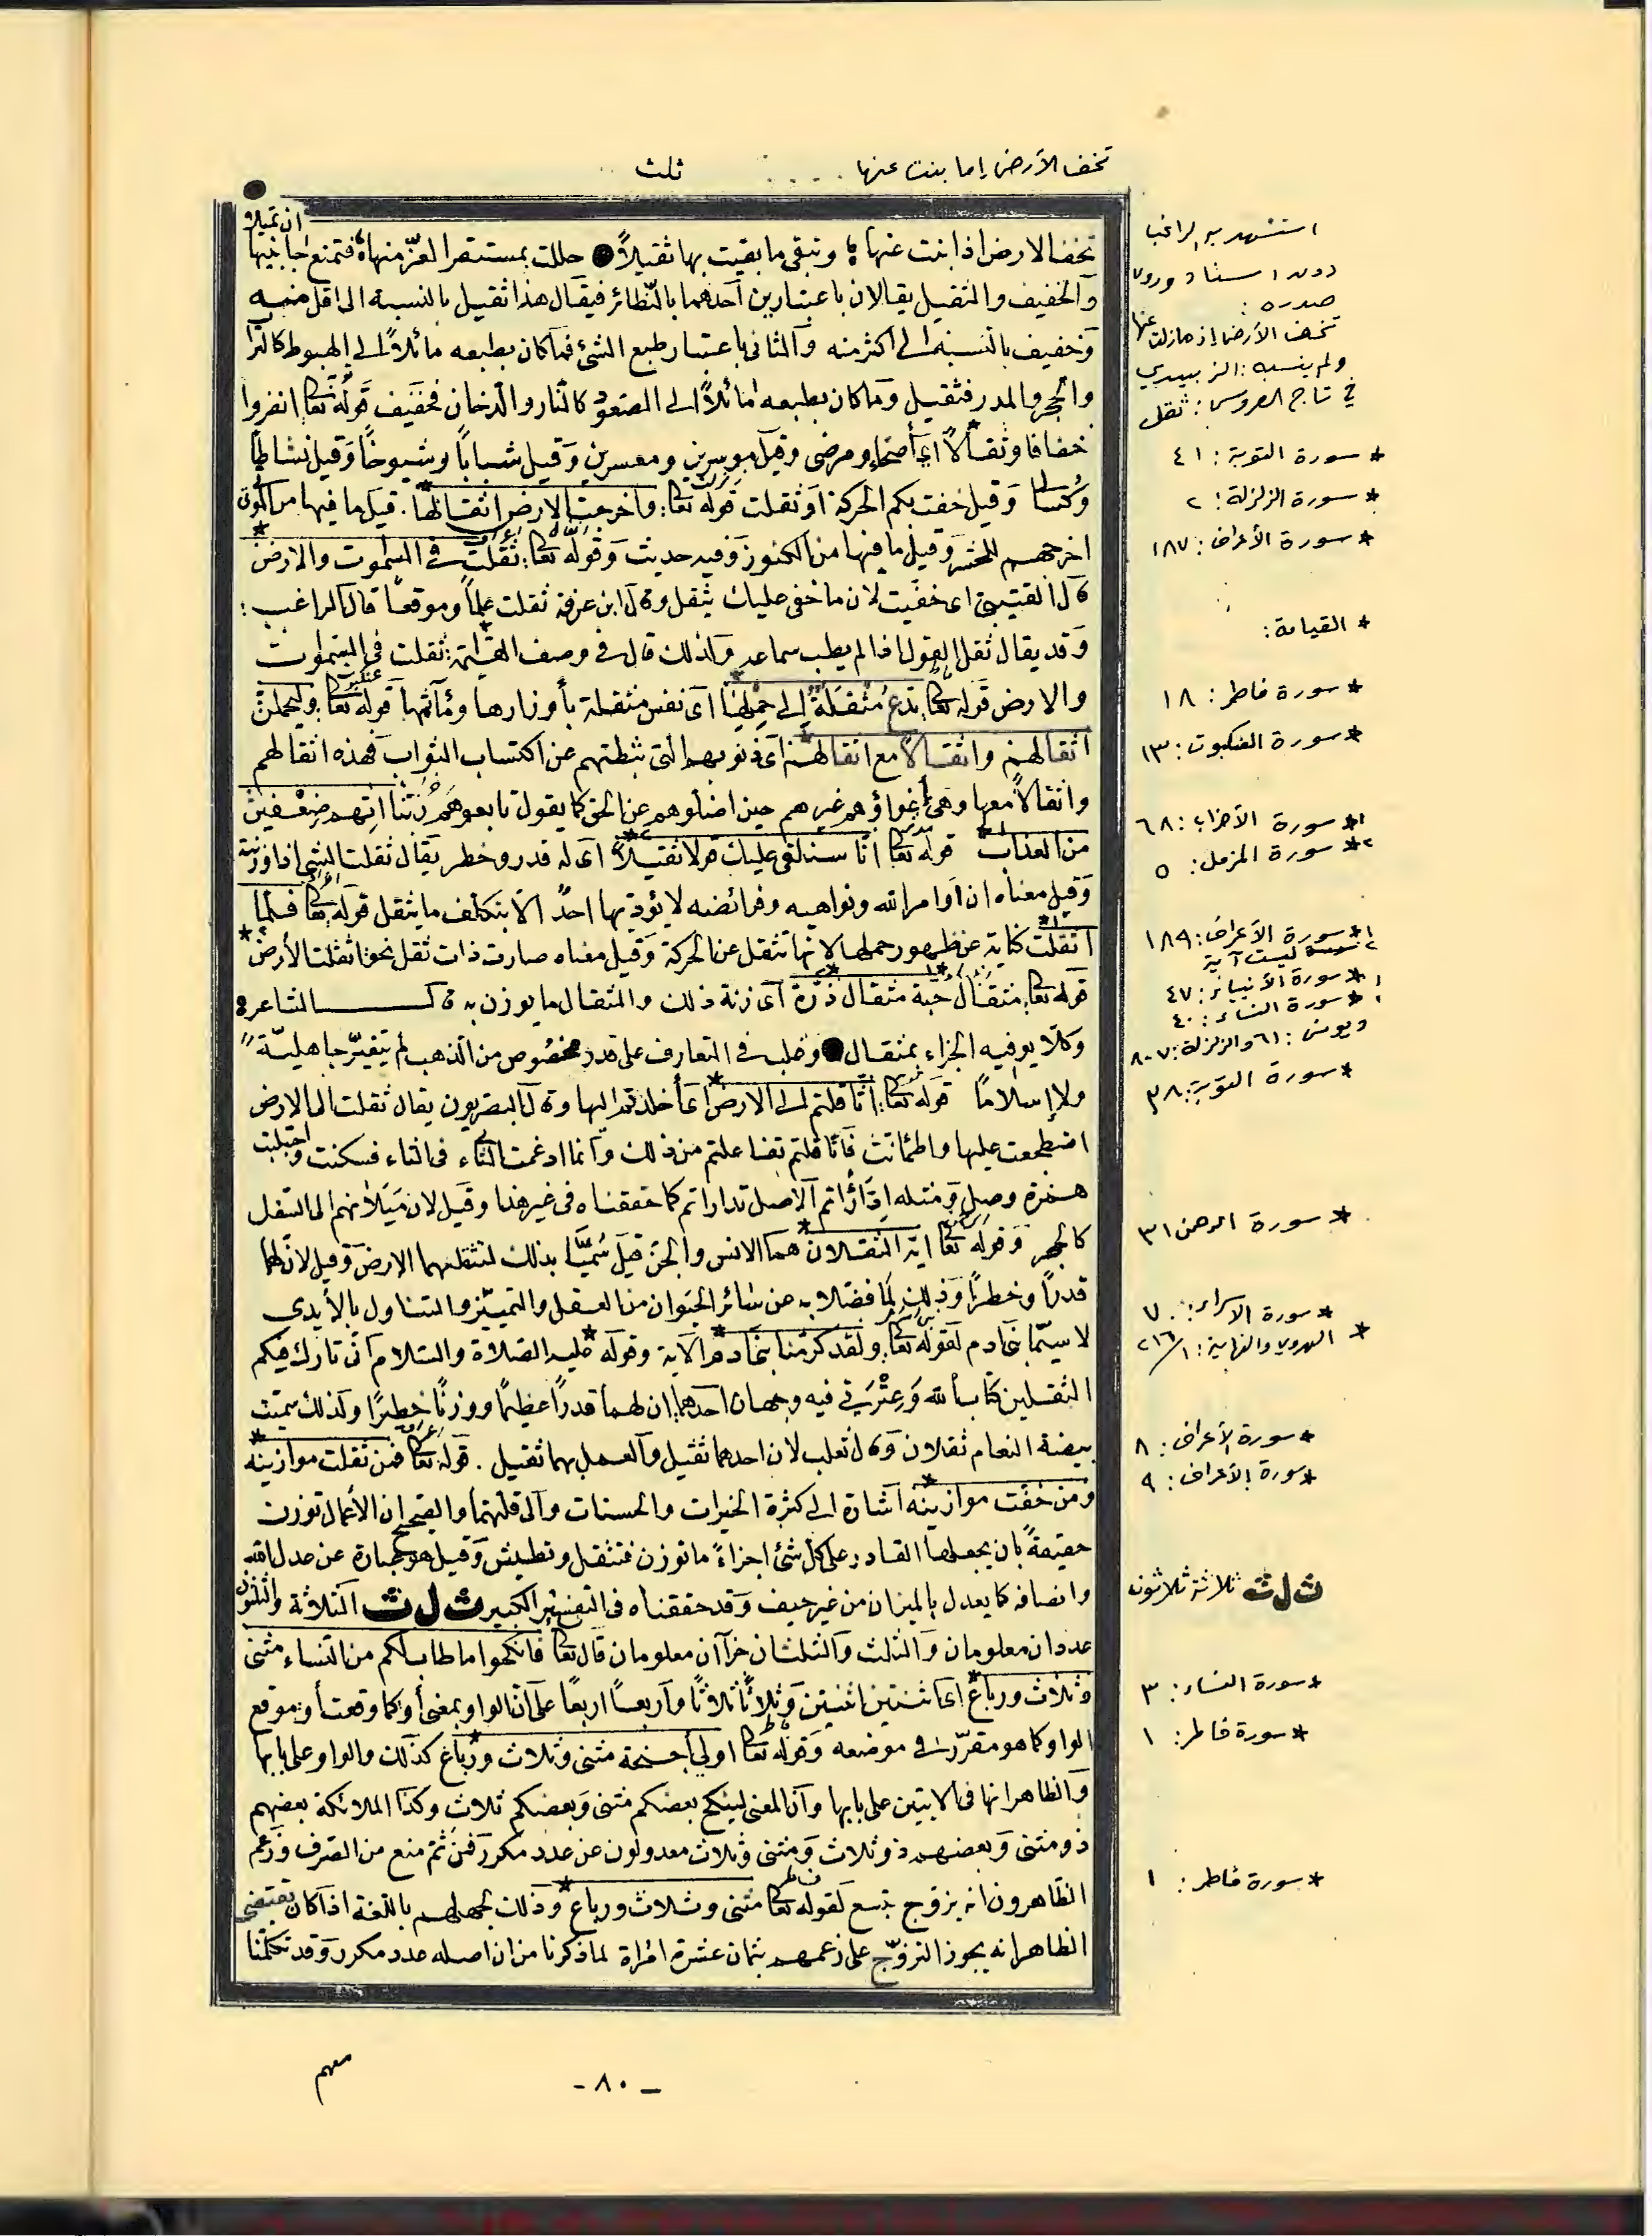 تخف الأرض إما بنت عنها . . . . ثلث
ان تميلا
تخف الارض اذا بنت عنها ؛ وتبقى ما بقيت بها ثقيلاً حللت بمستقر العزّ منها ؛ فتمنع جانبيها
والخفيف والثقيل يقالان باعتبارين أحدهما بالنظائر فيقال هذا ثقيل بالنسبة الى اقل منه
وخفيف بالنسبة الى اكثر منه والثانى باعتبار طبع الشئ فما كان بطبعه مائلاً الى الهبوط كالتراب
والحجر والمدر فثقيل وما كان بطبعه مائلاً الى الصعود كالنار والدخان فخفيف قوله تعا انفروا
خفافا وثقالاً اى أصحاء ومرضى وقيل موسرين ومعسرين وقيل شباباً وشيوخاً وقيل نشاطا
وكسالى وقيل خفت بكم الحركة او ثقلت قوله تعا: واخرجت الارض اثقالها. قيل ما فيها من الموتى
اخرجهم للحشر وقيل ما فيها من الكنوز وفيه حديث وقوله تعا: ثقلت فى السموت والارض
قال القتيبى اى خفيت لان ما خفى عليك يثقل وقال ابن عرفة ثقلت علماً وموقعاً قال الراغب :
وقد يقال ثقل القول اذا لم يطب سماعه ولذلك قال فى وصف القيامة: ثقلت فى السموت
والارض قوله تعا تدع مثقلة الى حملها اى نفس مثقلة بأوزارها ومآثمها قوله تعا: وليحملن
اثقالهم واثقالاً مع اثقالهم اى ذنوبهم التى ثبطتهم عن اكتساب الثواب فهذه اثقالهم
واثقالاً معها وهى إغواؤهم غيرهم حين اضلوهم عن الحق كما يقول تابعوهم ربنا اتهم ضعفين
من العذاب قوله تعا انا سنلقى عليك قولا ثقيلاً اى له قدر وخطر يقال ثقلت الشئ اذا وزنته
وقيل معناه ان اوامر الله ونواهيه وفرائضه لا يؤديها احد الا بتكلف ما يثقل قوله تعا فلما
اثقلت كناية عن ظهور حملها لانها تثقل عن الحركة وقيل معناه صارت ذات ثقل نحو اثقلت الأرض
قوله تعا: مثقال حبة مثقال ذرّة اى زنة ذلك والمثقال ما يوزن به قال الشاعر
وكلا يوفيه الجزاء بمثقال وغلب فى التعارف على قدر مخصوص من الذهب لم يتغير جاهليّة
ولا إسلاماً قوله تعا: اثاقلتم الى الارض اى أخلدتم اليها وقال البصريون يقال ثقلت الى الارض
اضطجعت عليها واطمأننت فاثاقلتم تفاعلتم من ذلك وانما ادغمت التاء فى الثاء فسكنت واجتلبت
همزة وصل ومثله ادّارأتم الاصل تدارأتم كما حققناه فى غير هذا وقيل لان ميلانهم الى التسفل
كالحجر وقوله تعا ايه الثقلان هما الانس والجن قيل سميا بذلك لتثقلهما الارض وقيل لان لهما
قدراً وخطراً وذلك لما فضلا به عن سائر الحيوان من العقل والتمييز والتناول بالأيدى
لا سيما بنى آدم لقوله تعا: ولقد كرمنا بنى آدم الآية وقوله عليه الصلاة والسلام انى تارك فيكم
الثقلين كتاب الله وعترتى فيه وجهان احدهما: ان لهما قدراً عظيماً ووزناً خطيراً ولذلك سميت
بيضة النعام ثقلان وقال ثعلب لان اخذهما ثقيل والعمل بهما ثقيل . قوله تعا فمن ثقلت موازينه
ومن خفت موازينه اشارة الى كثرة الخيرات والحسنات والى قلتهما والصحيح ان الأعمال توزن
حقيقة بان يجعلها القادر على كل شئ اجزاءً ما توزن فتثقل وتطيش وقيل هو عبارة عن عدل الله
وانصافه كما يعدل بالميزان من غير حيف وقد حققناه فى التفسير الكبير ث ل ث الثلاثة والثلثون
عددان معلومان والثلث والثلثان جزآن معلومان قال تعا فانكحوا ما طاب لكم من النساء مثنى
وثلاث ورباع اى اثنتين اثنتين وثلاثاً ثلاثاً وأربعاً اربعاً على ان الواو بمعنى أو كما وقعت أو موقع
الواو كما هو مقرّر فى موضعه وقوله تعا اولى أجنحة مثنى وثلاث ورباع كذلك والواو على بابها
والظاهر انها فى الايتين على بابها وان المعنى لينكح بعضكم مثنى وبعضكم ثلاث وكذا الملائكة بعضهم
ذو مثنى وبعضهم ذو ثلاث ومثنى وثلاث معدولون عن عدد مكرر فمن ثم منع من الصرف وزعم
الظاهرون انه يزوج بتسع لقوله تعا مثنى وثلاث ورباع وذلك لجهلهم باللغة اذا كان يقتضى
الظاهر انه يجوز التزوّج على زعمهم بثمان عشرة امرأة لما ذكرنا من ان اصله عدد مكرر وقد تكلمنا
استشهد به الراغب
دون اسناد وروى
صدره :
تخف الأرض إذ ما زلت عنها
ولم ينسبه : الزبيدي
في تاج العروس : ثقل
* سورة التوبة : ٤١
* سورة الزلزلة : ٢
* سورة الأعراف : ١٨٧
* القيامة :
* سورة فاطر : ١٨
* سورة العنكبوت : ١٣
١* سورة الأحزاب : ٦٨
٢* سورة المزمل : ٥
١* سورة الأعراف : ١٨٩
٢ ليست آية
١* سورة الأنبياء : ٤٧
٢* سورة النساء : ٤٠
ويونس : ٦١ والزلزلة : ٧-٨
* سورة التوبة : ٣٨
* سورة الرحمن ٣١
* سورة الاسراء : ٧٠
* الهروي والنهاية : ٢١٦/١
* سورة الأعراف : ٨
* سورة الأعراف : ٩
ث ل ث ثلاثة ثلاثون
* سورة النساء : ٣
* سورة فاطر : ١
* سورة فاطر : ١
معهم
- ٨٠ -